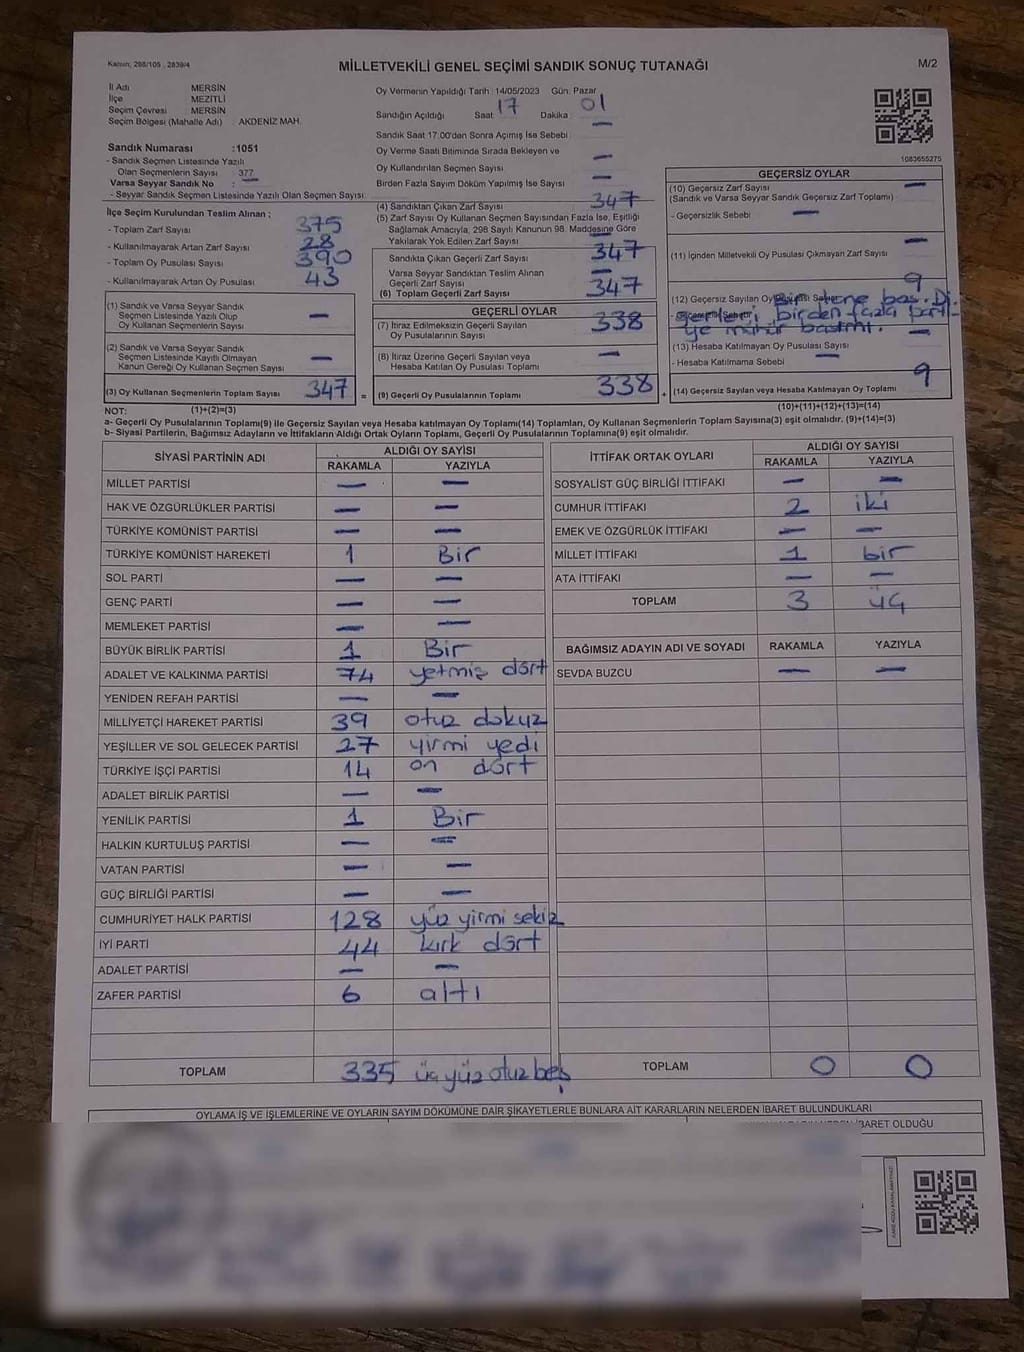 Kanun; 298/105 , 2839/4
MİLLETVEKİLİ GENEL SEÇİMİ SANDIK SONUÇ TUTANAĞI
M/2
İl Adı MERSİN
İlçe MEZİTLİ
Seçim Çevresi MERSİN
Seçim Bölgesi (Mahalle Adı) : AKDENİZ MAH.
Sandık Numarası :1051
- Sandık Seçmen Listesinde Yazılı
Olan Seçmenlerin Sayısı : 377
Varsa Seyyar Sandık No : —
- Seyyar Sandık Seçmen Listesinde Yazılı Olan Seçmen Sayısı
Oy Vermenin Yapıldığı Tarih : 14/05/2023 Gün: Pazar
Sandığın Açıldığı Saat 17 Dakika 01
Sandık Saat 17:00'den Sonra Açımış İse Sebebi —
Oy Verme Saati Bitiminde Sırada Bekleyen ve
Oy Kullandırılan Seçmen Sayısı —
Birden Fazla Sayım Döküm Yapılmış İse Sayısı —
1083655275
İlçe Seçim Kurulundan Teslim Alınan ;
- Toplam Zarf Sayısı 375
- Kullanılmayarak Artan Zarf Sayısı 28
- Toplam Oy Pusulası Sayısı 390
- Kullanılmayarak Artan Oy Pusulası 43
(1) Sandık ve Varsa Seyyar Sandık
Seçmen Listesinde Yazılı Olup
Oy Kullanan Seçmenlerin Sayısı —
(2) Sandık ve Varsa Seyyar Sandık
Seçmen Listesinde Kayıtlı Olmayan
Kanun Gereği Oy Kullanan Seçmen Sayısı —
(3) Oy Kullanan Seçmenlerin Toplam Sayısı 347 =
(4) Sandıktan Çıkan Zarf Sayısı 347
(5) Zarf Sayısı Oy Kullanan Seçmen Sayısından Fazla İse, Eşitliği
Sağlamak Amacıyla, 298 Sayılı Kanunun 98. Maddesine Göre
Yakılarak Yok Edilen Zarf Sayısı —
Sandıkta Çıkan Geçerli Zarf Sayısı 347
Varsa Seyyar Sandıktan Teslim Alınan
Geçerli Zarf Sayısı —
(6) Toplam Geçerli Zarf Sayısı 347
GEÇERLİ OYLAR
(7) İtiraz Edilmeksizin Geçerli Sayılan
Oy Pusulalarının Sayısı 338
(8) İtiraz Üzerine Geçerli Sayılan veya
Hesaba Katılan Oy Pusulası Toplamı —
(9) Geçerli Oy Pusulalarının Toplamı 338 +
GEÇERSİZ OYLAR
(10) Geçersiz Zarf Sayısı —
(Sandık ve Varsa Seyyar Sandık Geçersiz Zarf Toplamı)
- Geçersizlik Sebebi —
(11) İçinden Milletvekili Oy Pusulası Çıkmayan Zarf Sayısı —
(12) Geçersiz Sayılan Oy Pusulası Sayısı 9
- Geçersizlik Sebebi Bir tane boş. Di
ğerleri birden fazla parti
ye mühür bastmı.
(13) Hesaba Katılmayan Oy Pusulası Sayısı —
- Hesaba Katılmama Sebebi —
(14) Geçersiz Sayılan veya Hesaba Katılmayan Oy Toplamı 9
NOT: (1)+(2)=(3) (10)+(11)+(12)+(13)=(14)
a- Geçerli Oy Pusulalarının Toplamı(9) ile Geçersiz Sayılan veya Hesaba katılmayan Oy Toplamı(14) Toplamları, Oy Kullanan Seçmenlerin Toplam Sayısına(3) eşit olmalıdır. (9)+(14)=(3)
b- Siyasi Partilerin, Bağımsız Adayların ve İttifakların Aldığı Ortak Oyların Toplamı, Geçerli Oy Pusulalarının Toplamına(9) eşit olmalıdır.
SİYASİ PARTİNİN ADI ALDIĞI OY SAYISI
RAKAMLA YAZIYLA
MİLLET PARTİSİ — —
HAK VE ÖZGÜRLÜKLER PARTİSİ — —
TÜRKİYE KOMÜNİST PARTİSİ — —
TÜRKİYE KOMÜNİST HAREKETİ 1 Bir
SOL PARTİ — —
GENÇ PARTİ — —
MEMLEKET PARTİSİ — —
BÜYÜK BİRLİK PARTİSİ 1 Bir
ADALET VE KALKINMA PARTİSİ 74 yetmiş dört
YENİDEN REFAH PARTİSİ — —
MİLLİYETÇİ HAREKET PARTİSİ 39 otuz dokuz
YEŞİLLER VE SOL GELECEK PARTİSİ 27 yirmi yedi
TÜRKİYE İŞÇİ PARTİSİ 14 on dört
ADALET BİRLİK PARTİSİ — —
YENİLİK PARTİSİ 1 Bir
HALKIN KURTULUŞ PARTİSİ — —
VATAN PARTİSİ — —
GÜÇ BİRLİĞİ PARTİSİ — —
CUMHURİYET HALK PARTİSİ 128 yüz yirmi sekiz
İYİ PARTİ 44 kırk dört
ADALET PARTİSİ — —
ZAFER PARTİSİ 6 altı
TOPLAM 335 üç yüz otuz beş
İTTİFAK ORTAK OYLARI ALDIĞI OY SAYISI
RAKAMLA YAZIYLA
SOSYALİST GÜÇ BİRLİĞİ İTTİFAKI — —
CUMHUR İTTİFAKI 2 iki
EMEK VE ÖZGÜRLÜK İTTİFAKI — —
MİLLET İTTİFAKI 1 bir
ATA İTTİFAKI — —
TOPLAM 3 üç
BAĞIMSIZ ADAYIN ADI VE SOYADI RAKAMLA YAZIYLA
SEVDA BUZCU — —
TOPLAM 0 0
OYLAMA İŞ VE İŞLEMLERİNE VE OYLARIN SAYIM DÖKÜMÜNE DAİR ŞİKAYETLERLE BUNLARA AİT KARARLARIN NELERDEN İBARET BULUNDUKLARI
İBARET OLDUĞU